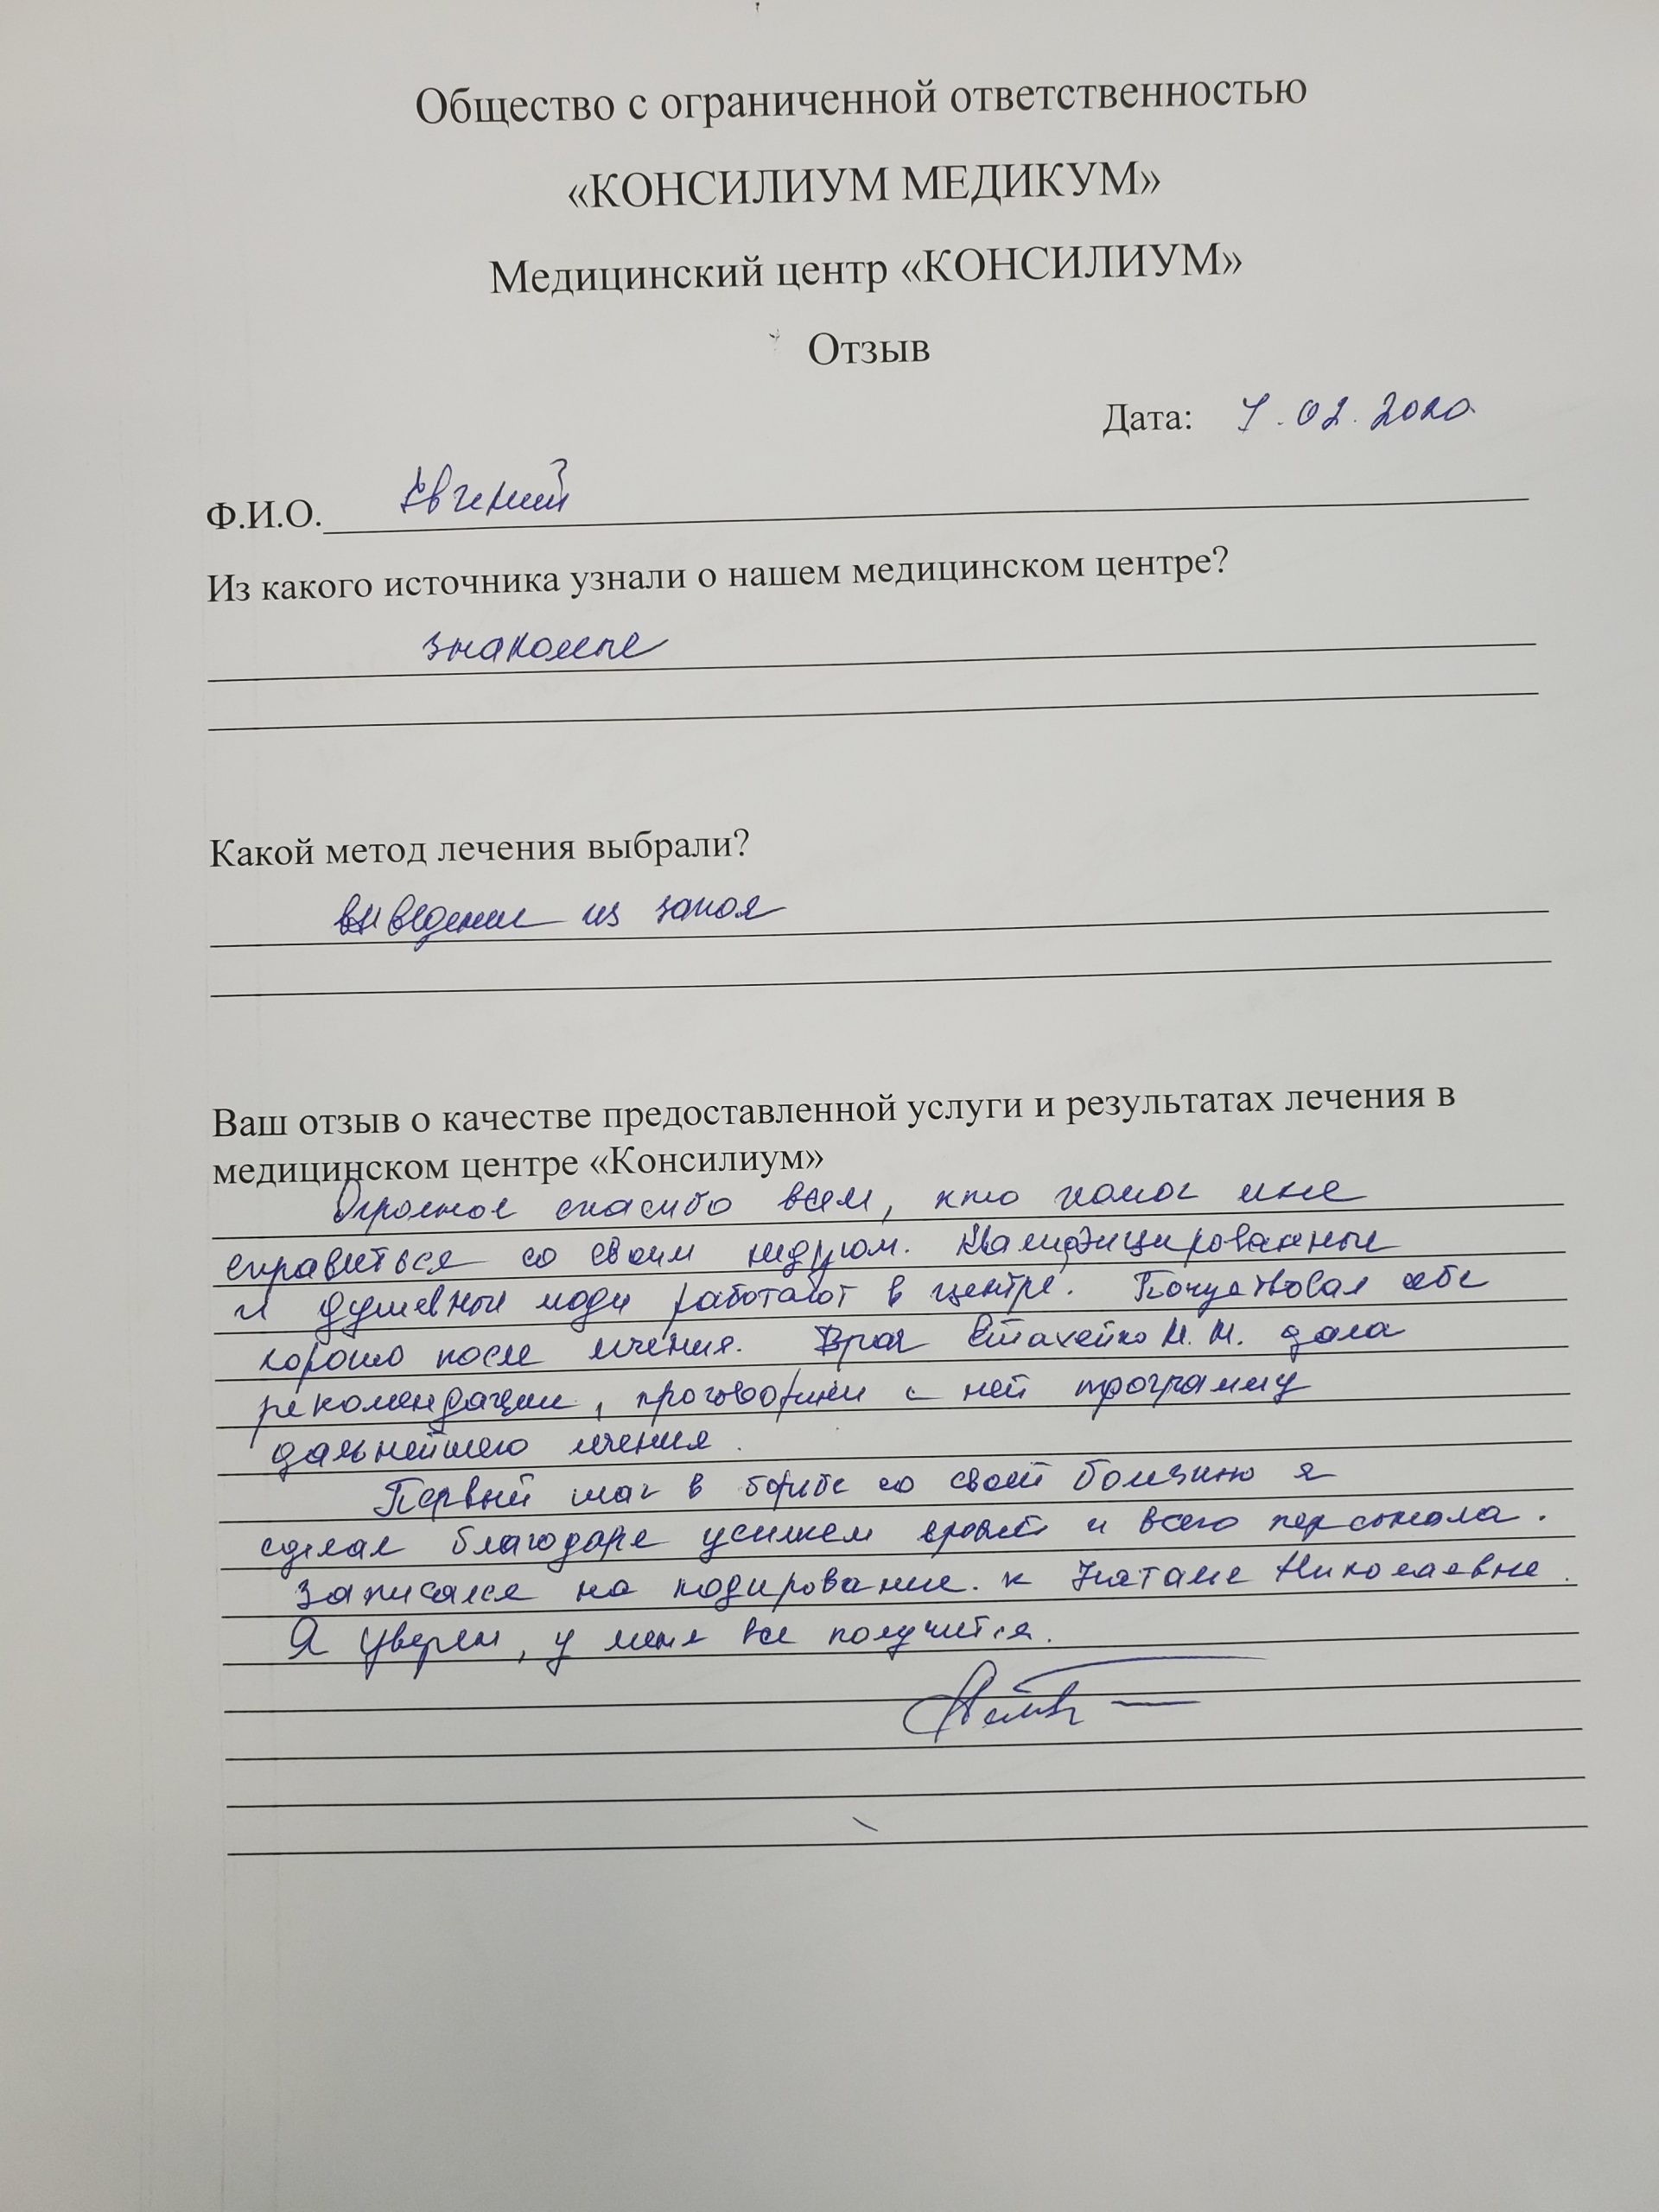 Общество с ограниченной ответственностью
«КОНСИЛИУМ МЕДИКУМ»
Медицинский центр «КОНСИЛИУМ»
Отзыв
Дата: 7.02.2020
Ф.И.О. Евгений
Из какого источника узнали о нашем медицинском центре?
знакомые
Какой метод лечения выбрали?
выведение из запоя
Ваш отзыв о качестве предоставленной услуги и результатах лечения в
медицинском центре «Консилиум»
Огромное спасибо всем, кто помог мне
справиться со своим недугом. Квалифицированные
и душевные люди работают в центре. Почуствовал себя
хорошо после лечения. Врач Стахейко Н. Н. дала
рекомендации, проговорили с ней программу
дальнейшего лечения.
Первый шаг в борьбе со своей болезнью я
сделал благодаря усилиям врачей и всего персонала.
Записался на кодирование. к Наталье Николаевне.
Я уверен, у меня все получится.